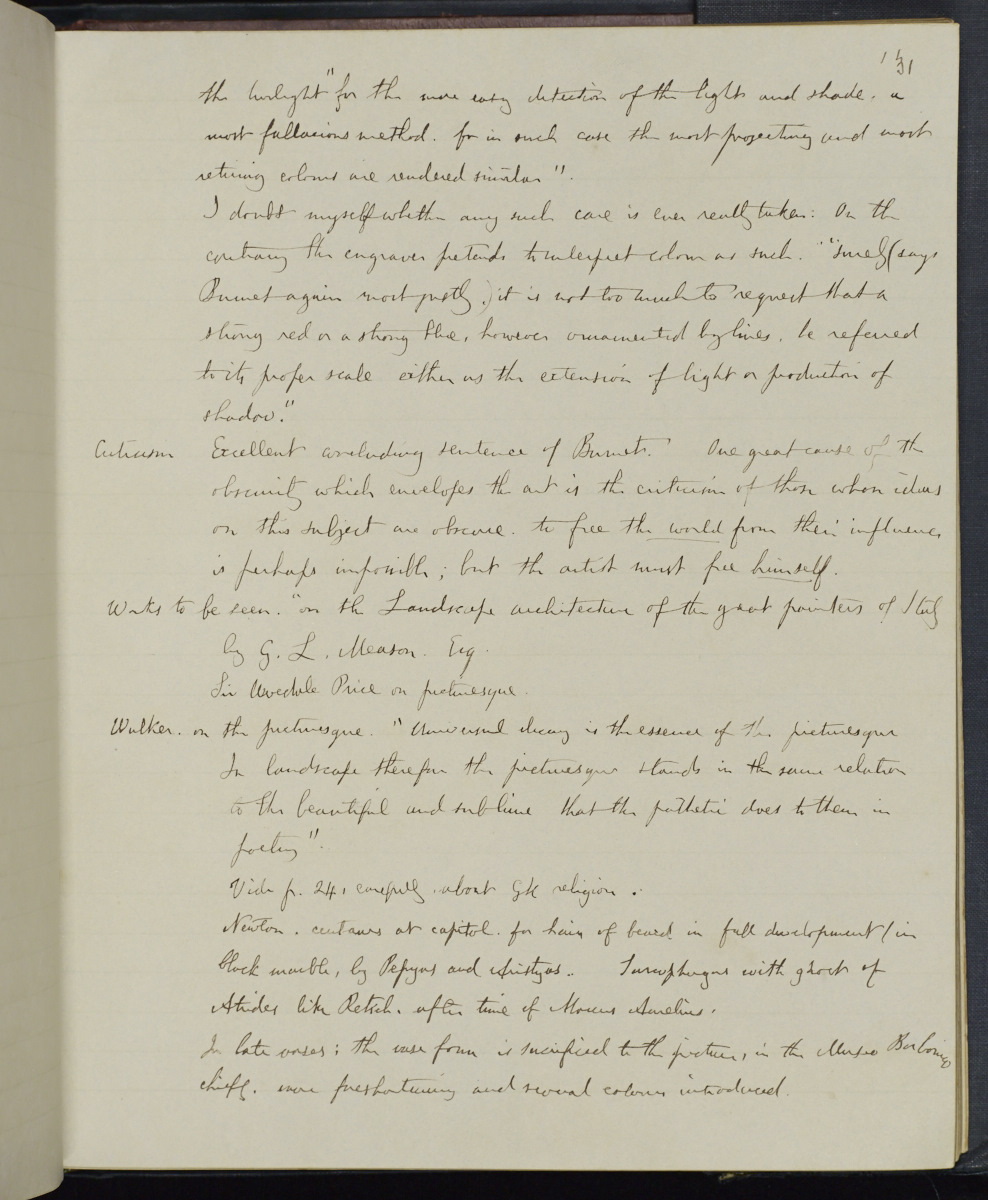 131
the twilight "for the more easy detection of the light and shade. a
most fallacious method. for in such case the most projecting and most
retiring colours are rendered similar".
I doubt myself whether any such care is ever really taken: On the
contrary the engraver pretends to interpret colour as such. "surely (says
Burnet again most justly.) it is not too much to request that a
strong red or a strong blue, however ornamented by lines, be referred
to its proper scale either as the extension of light or production of
shadow."
Criticism Excellent concluding sentence of Burnet. One great cause of the
obscurity which envelopes the art is the criticism of those whose ideas
on this subject are obscure. to free the world from their influence
is perhaps impossible; but the artist must free himself.
Works to be seen. "on the Landscape architecture of the great painters of Italy
by G. L. Meason. Esq.
Sir Uvedale Price on picturesque.
Walker. on the picturesque. "Universal decay is the essence of the picturesque
In landscape therefore the picturesque stands in the same relation
to the beautiful and sublime that the pathetic does to them in
poetry".
Vide p. 24, carefully. about Gk religion.
Newton. centaurs at capitol. for hair of beard in full development / in
black marble, by Papyas and Aristyas. Sarcophagus with ghost of
Atrides like Retsch. after time of Marcus Aurelius.
In late vases; the vase form is sacrificed to the picture, in the Museo Borbonico
chiefly. more foreshortening and several colours introduced.